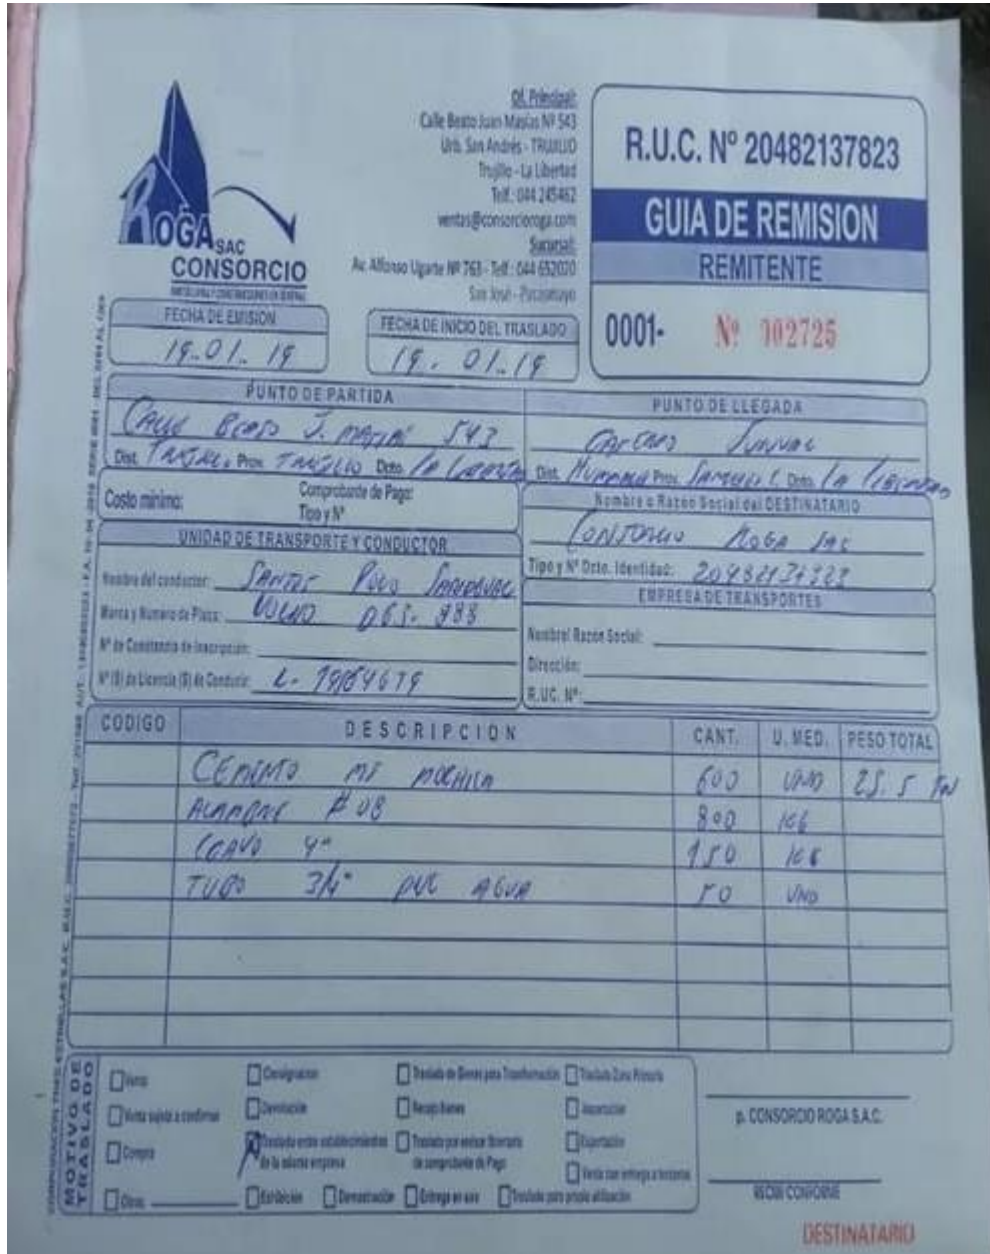 ROGA SAC
CONSORCIO
Of. Principal:
Calle Beato Juan Masías Nº 543
Urb. San Andrés - TRUJILLO
Trujillo - La Libertad
Telf.: 044 245462
ventas@consorcioroga.com
Sucursal:
Av. Alfonso Ugarte Nº 763 - Telf.: 044 652020
San José - Pacasmayo
R.U.C. Nº 20482137823
GUIA DE REMISION
REMITENTE
0001- Nº 002725
FECHA DE EMISION
19..01.. 19
FECHA DE INICIO DEL TRASLADO
19.. 01.. 19
PUNTO DE PARTIDA
Calle Beato J. Masías 543
Dist. Trujillo Prov. Trujillo Dcto. La Libertad
PUNTO DE LLEGADA
Caserio
Dist. Prov. Dcto. La Libertad
Costo minimo:
Comprobante de Pago:
Tipo y Nº
Nombre o Razón Social del DESTINATARIO
Consorcio Roga SAC
Tipo y Nº Dcto. Identidad: 20482137823
UNIDAD DE TRANSPORTE Y CONDUCTOR
Nombre del conductor: Santos Polo Sandoval
Marca y Numero de Placa: Volvo
Nº de Constancia de Inscripción:
Nº (S) de Licencia (S) de Conducir:
EMPRESA DE TRANSPORTES
Nombre/ Razón Social:
Dirección:
R.U.C. Nº:
CODIGO DESCRIPCION CANT. U. MED. PESO TOTAL
CEMENTO MS MOCHICA 600 UND 25.5 TN
ALAMBRE # 08 800 KG
CLAVO 4" 150 KG
TUBO 3/4" PVC AGUA 50 UND
MOTIVO DE TRASLADO
Venta
Consignacion
Traslado de Bienes para Transformación
Traslado Zona Primaria
Venta sujeta a confirmar
Devolución
Recojo Bienes
Importación
Compra
Traslado entre establecimientos de la misma empresa
Traslado por emisor Itinerante de comprobante de Pago
Exportación
Venta con entrega a terceros
Otros
Exhibición
Demostración
Entrega en uso
Traslado para propia utilización
p. CONSORCIO ROGA S.A.C.
RECIBI CONFORME
DESTINATARIO